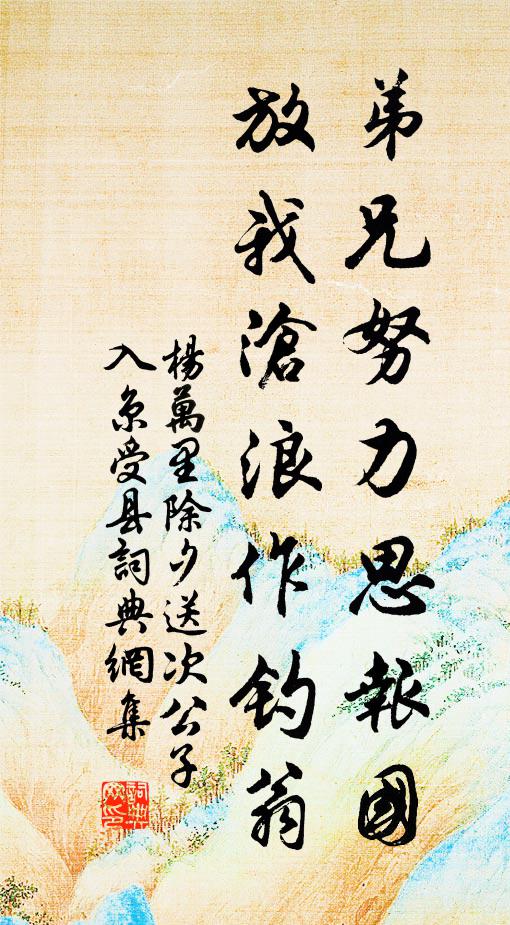 弟兄努力思報國
放我滄浪作钓翁
楊萬里除夕送次公子
入京受县詞典網集